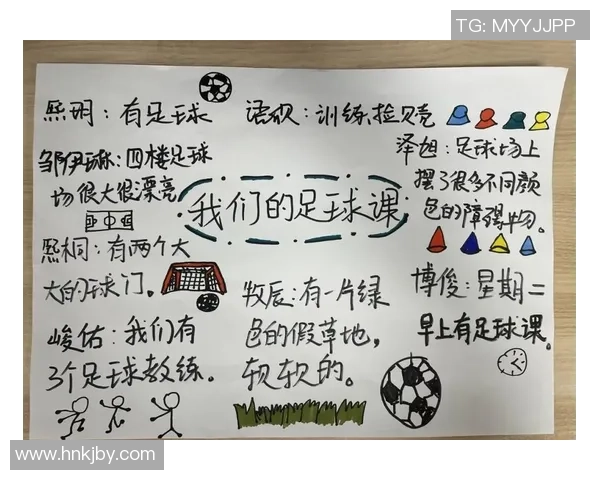 TG: MYYJJPP
熙玥：有足球
语砚：训练捡贝壳
邹伊琳：四楼足球
场很大很漂亮
泽旭：足球场上
摆了很多不同颜
色的障碍物。
我们的足球课
熙桐：有两个大
大的球门。
牧辰：有一片绿
色的假草地，
软软的。
博俊：星期二
早上有足球课。
峻佑：我们有
3个足球教练。
www.hnkjby.com